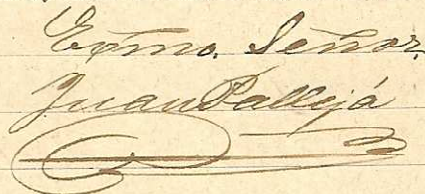 Exmo. Señor.
Juan Pallejá